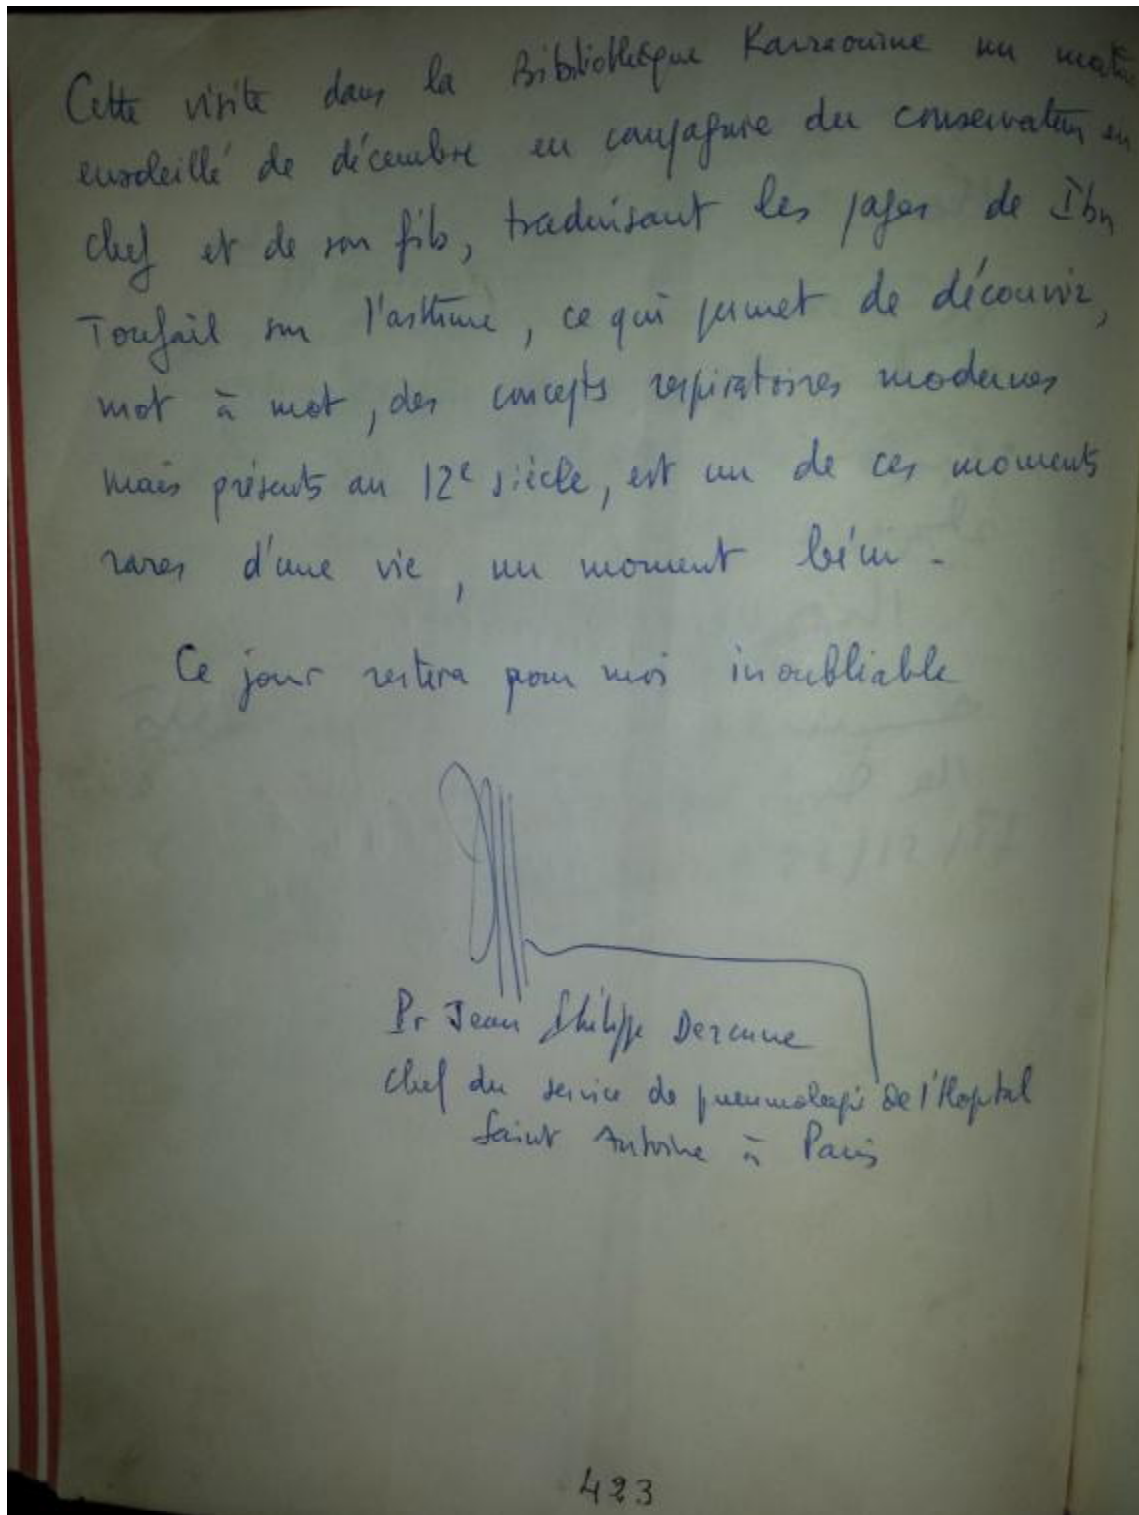 Cette visite dans la Bibiliothèque Karraouine un matin
ensoleillé de décembre en compagnie du conservateur en
chef et de son fils, traduisant les pages de Ibn
Toufail sur l'asthme, ce qui permet de découvrir,
mot à mot, des concepts respiratoires modernes
mais présents au 12e siècle, est un de ces moments
rares d'une vie, un moment béni.
Ce jour restera pour moi inoubliable
Pr Jean Philippe Derenne
Chef du service de pneumologie de l'Hopital
Saint Antoine à Paris
423